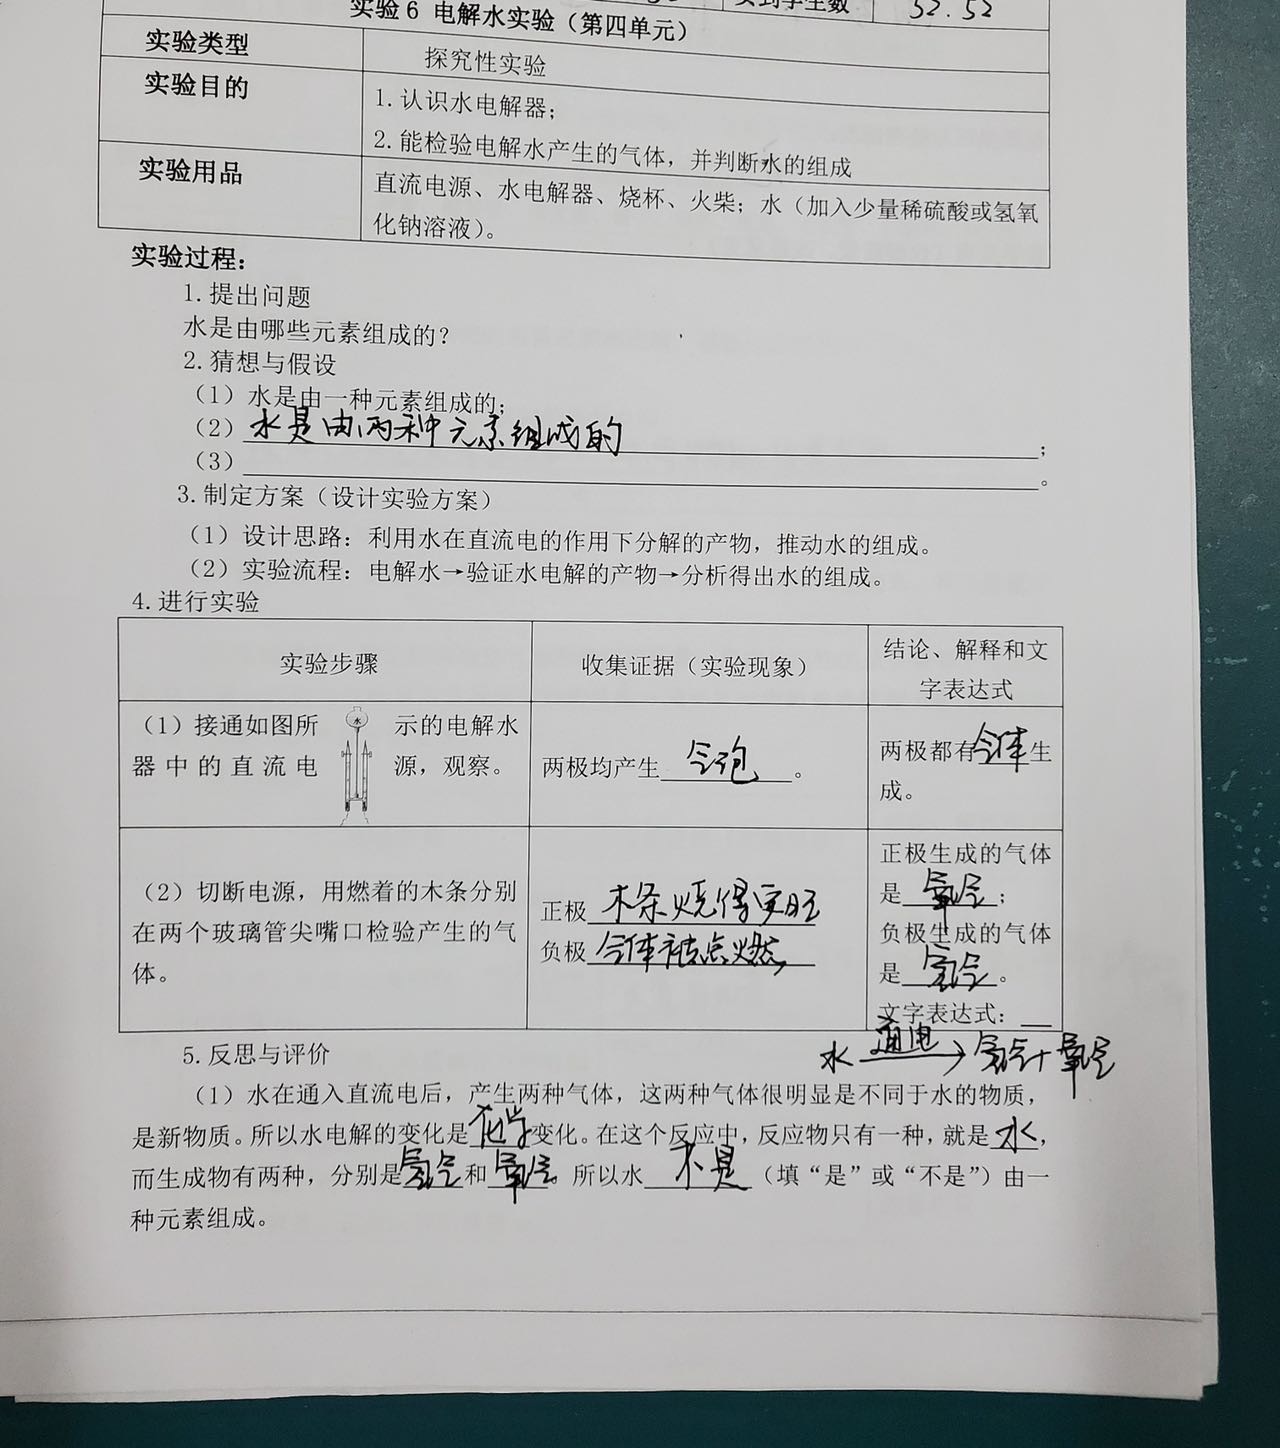 实到学生数 52.52
实验6 电解水实验（第四单元）
实验类型 探究性实验
实验目的 1.认识水电解器；
2.能检验电解水产生的气体，并判断水的组成
实验用品 直流电源、水电解器、烧杯、火柴；水（加入少量稀硫酸或氢氧
化钠溶液）。
实验过程：
1.提出问题
水是由哪些元素组成的？
2.猜想与假设
（1）水是由一种元素组成的；
（2）水是由两种元素组成的；
（3）。
3.制定方案（设计实验方案）
（1）设计思路：利用水在直流电的作用下分解的产物，推动水的组成。
（2）实验流程：电解水→验证水电解的产物→分析得出水的组成。
4.进行实验
实验步骤 收集证据（实验现象） 结论、解释和文
字表达式
（1）接通如图所 水 示的电解水
器中的直流电 源，观察。
两极均产生气泡。
两极都有气体生
成。
（2）切断电源，用燃着的木条分别
在两个玻璃管尖嘴口检验产生的气
体。
正极 木条烧得更旺
负极 气体被点燃
正极生成的气体
是氧气；
负极生成的气体
是氢气。
文字表达式：
水 通电→ 氢气+氧气
5.反思与评价
（1）水在通入直流电后，产生两种气体，这两种气体很明显是不同于水的物质，
是新物质。所以水电解的变化是化学变化。在这个反应中，反应物只有一种，就是水，
而生成物有两种，分别是氢气和氧气。所以水不是（填“是”或“不是”）由一
种元素组成。